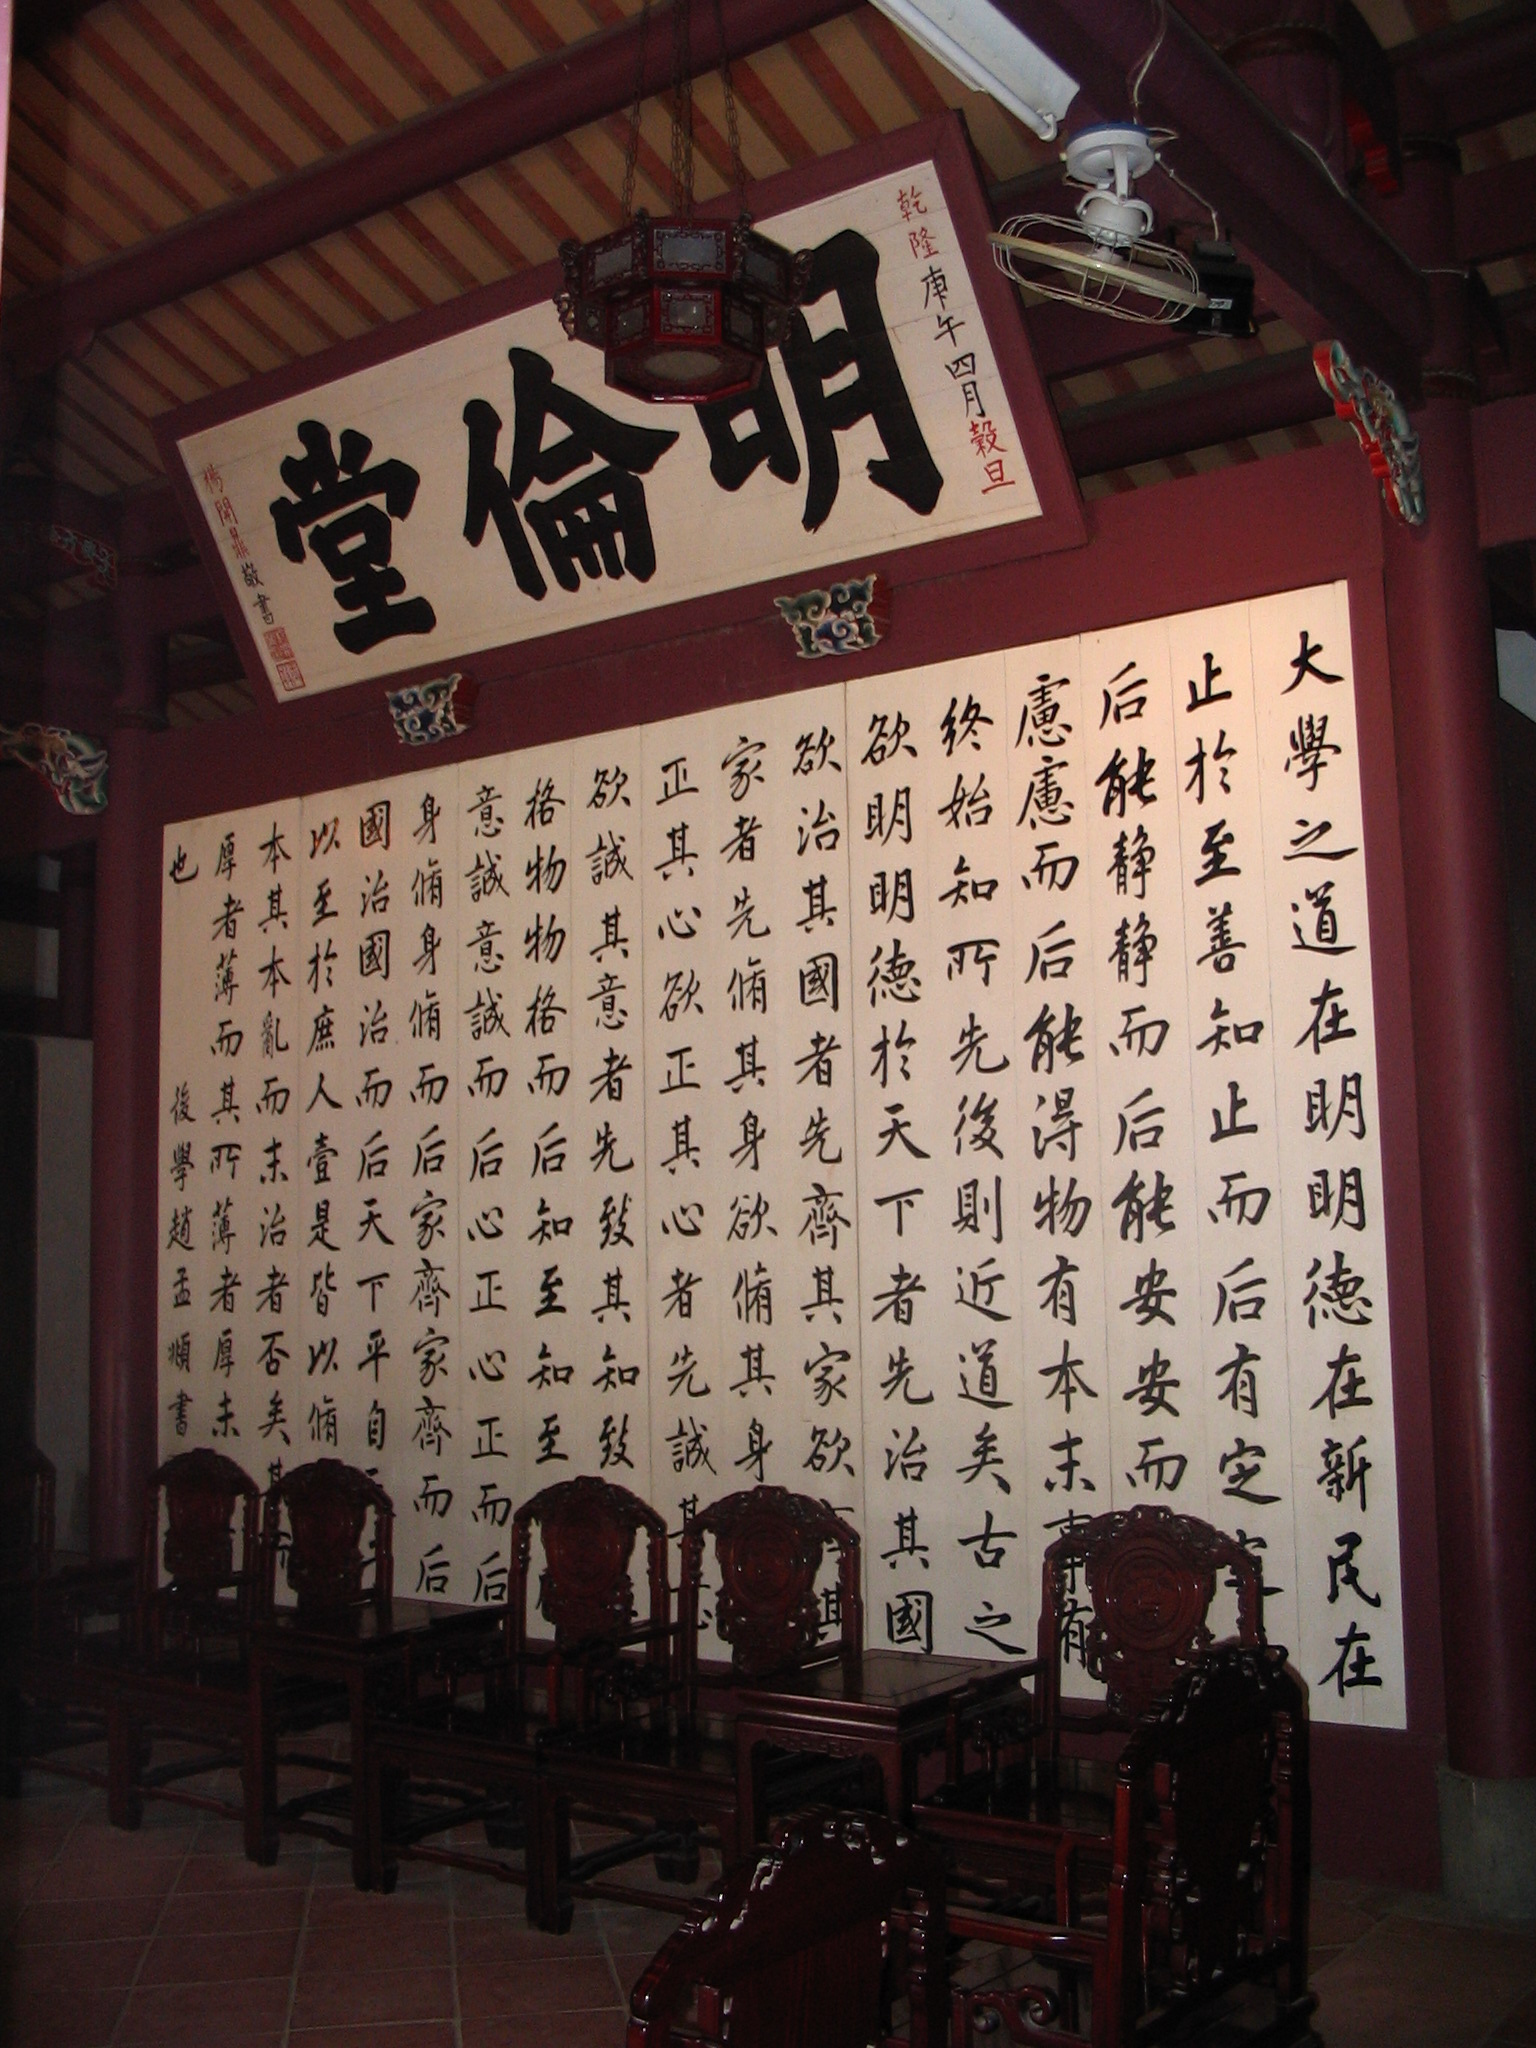 乾隆庚午四月穀旦
明倫堂
楊開鼎敬書
大學之道在明明德在新民在
止於至善知止而后有定定
后能靜靜而后能安安而
慮慮而后能得物有本末事有
終始知所先後則近道矣古之
欲明明德於天下者先治其國
欲治其國者先齊其家欲齊其
家者先脩其身欲脩其身
正其心欲正其心者先誠其意
欲誠其意者先致其知致
格物物格而后知至知至
意誠意誠而后心正心正而后
身脩身脩而后家齊家齊而后
國治國治而后天下平自天
以至於庶人壹是皆以脩
本其本亂而末治者否矣其所
厚者薄而其所薄者厚未
也 後學趙孟頫書